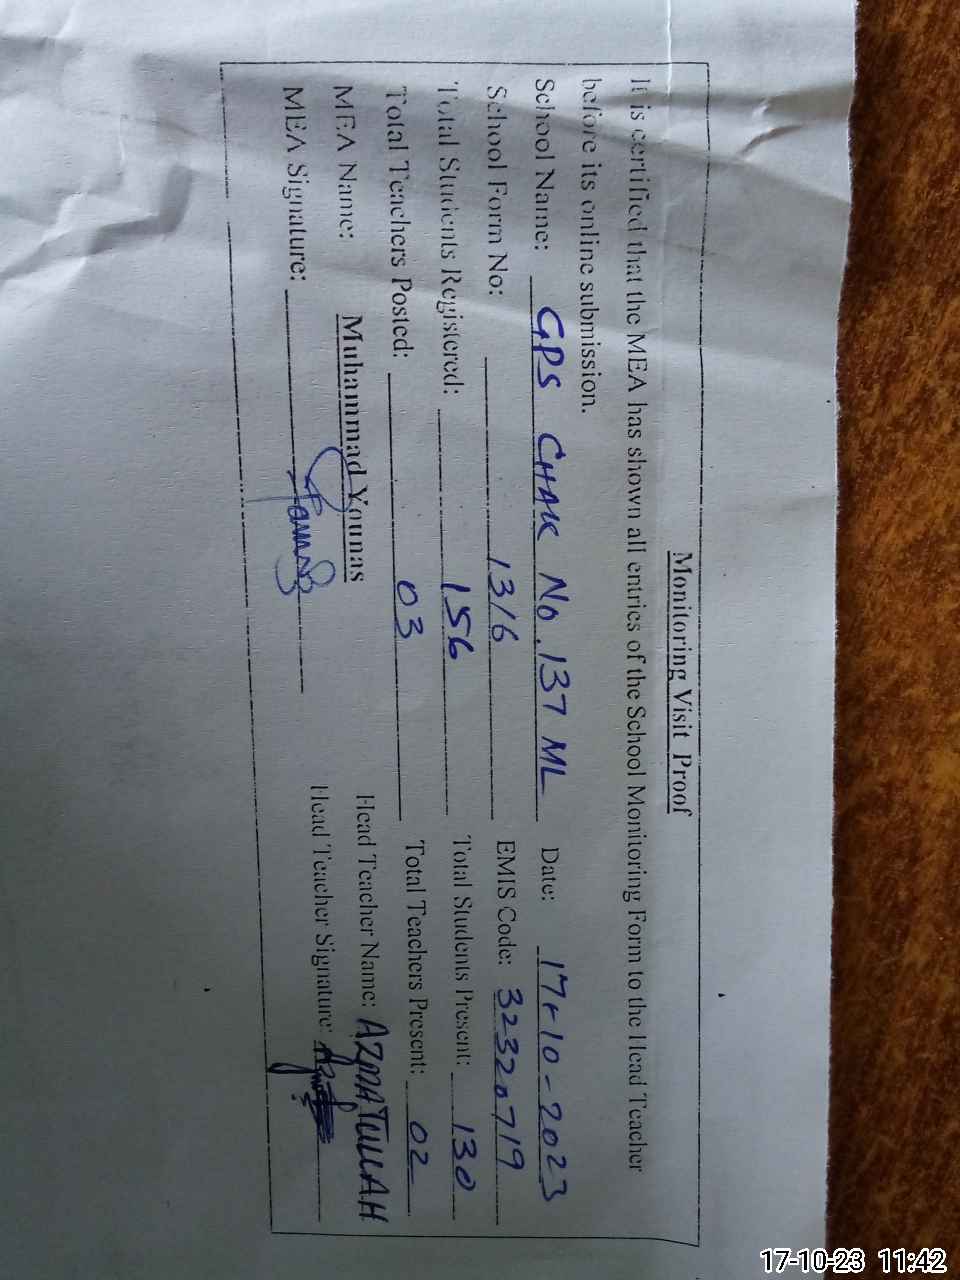 Monitoring Visit Proof
It is certified that the MEA has shown all entries of the School Monitoring Form to the Head Teacher
before its online submission.
School Name: GPS CHAK No. 137 ML Date: 17-10-2023
School Form No: 1316 EMIS Code: 32320719
Total Students Registered: 156 Total Students Present: 130
Total Teachers Posted: 03 Total Teachers Present: 02
MEA Name: Muhammad Younas Head Teacher Name: AZMATULLAH
MEA Signature: Head Teacher Signature:
17-10-23 11:42